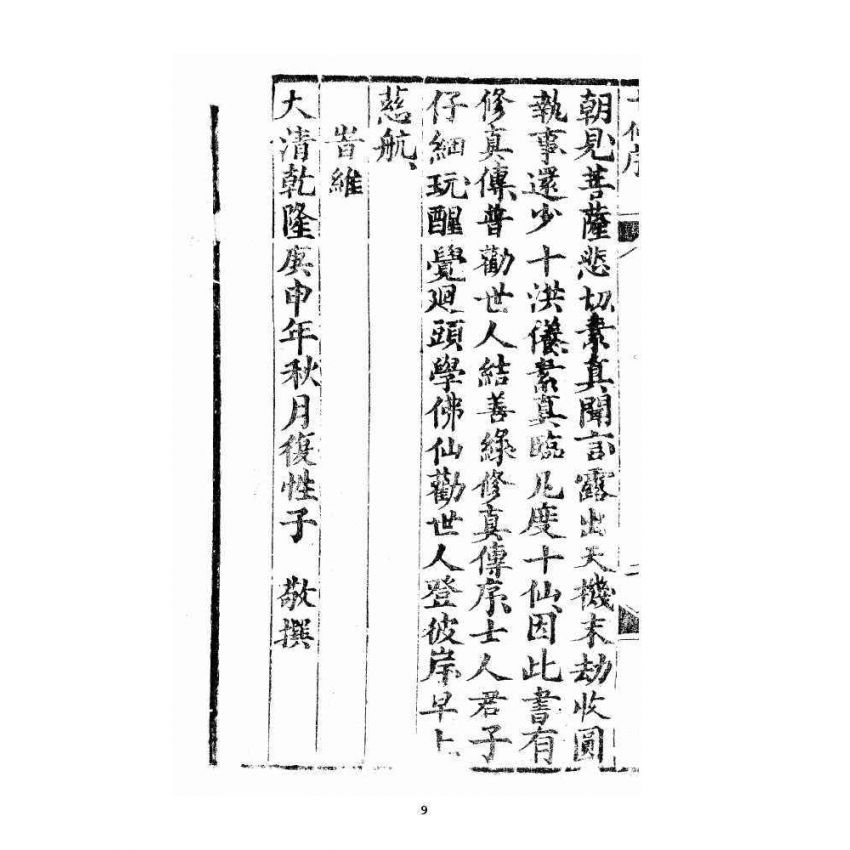 朝見菩薩悲切素真聞言露出天機末劫收圓
執事還少十洪儀素真臨凡度十仙因此書有
修真傳普勸世人結善緣修真傳序士人君子
仔細玩醒覺廻頭學佛仙勸世人登彼岸早上
慈航
旹維
大清乾隆庚申年秋月復性子 敬撰
9